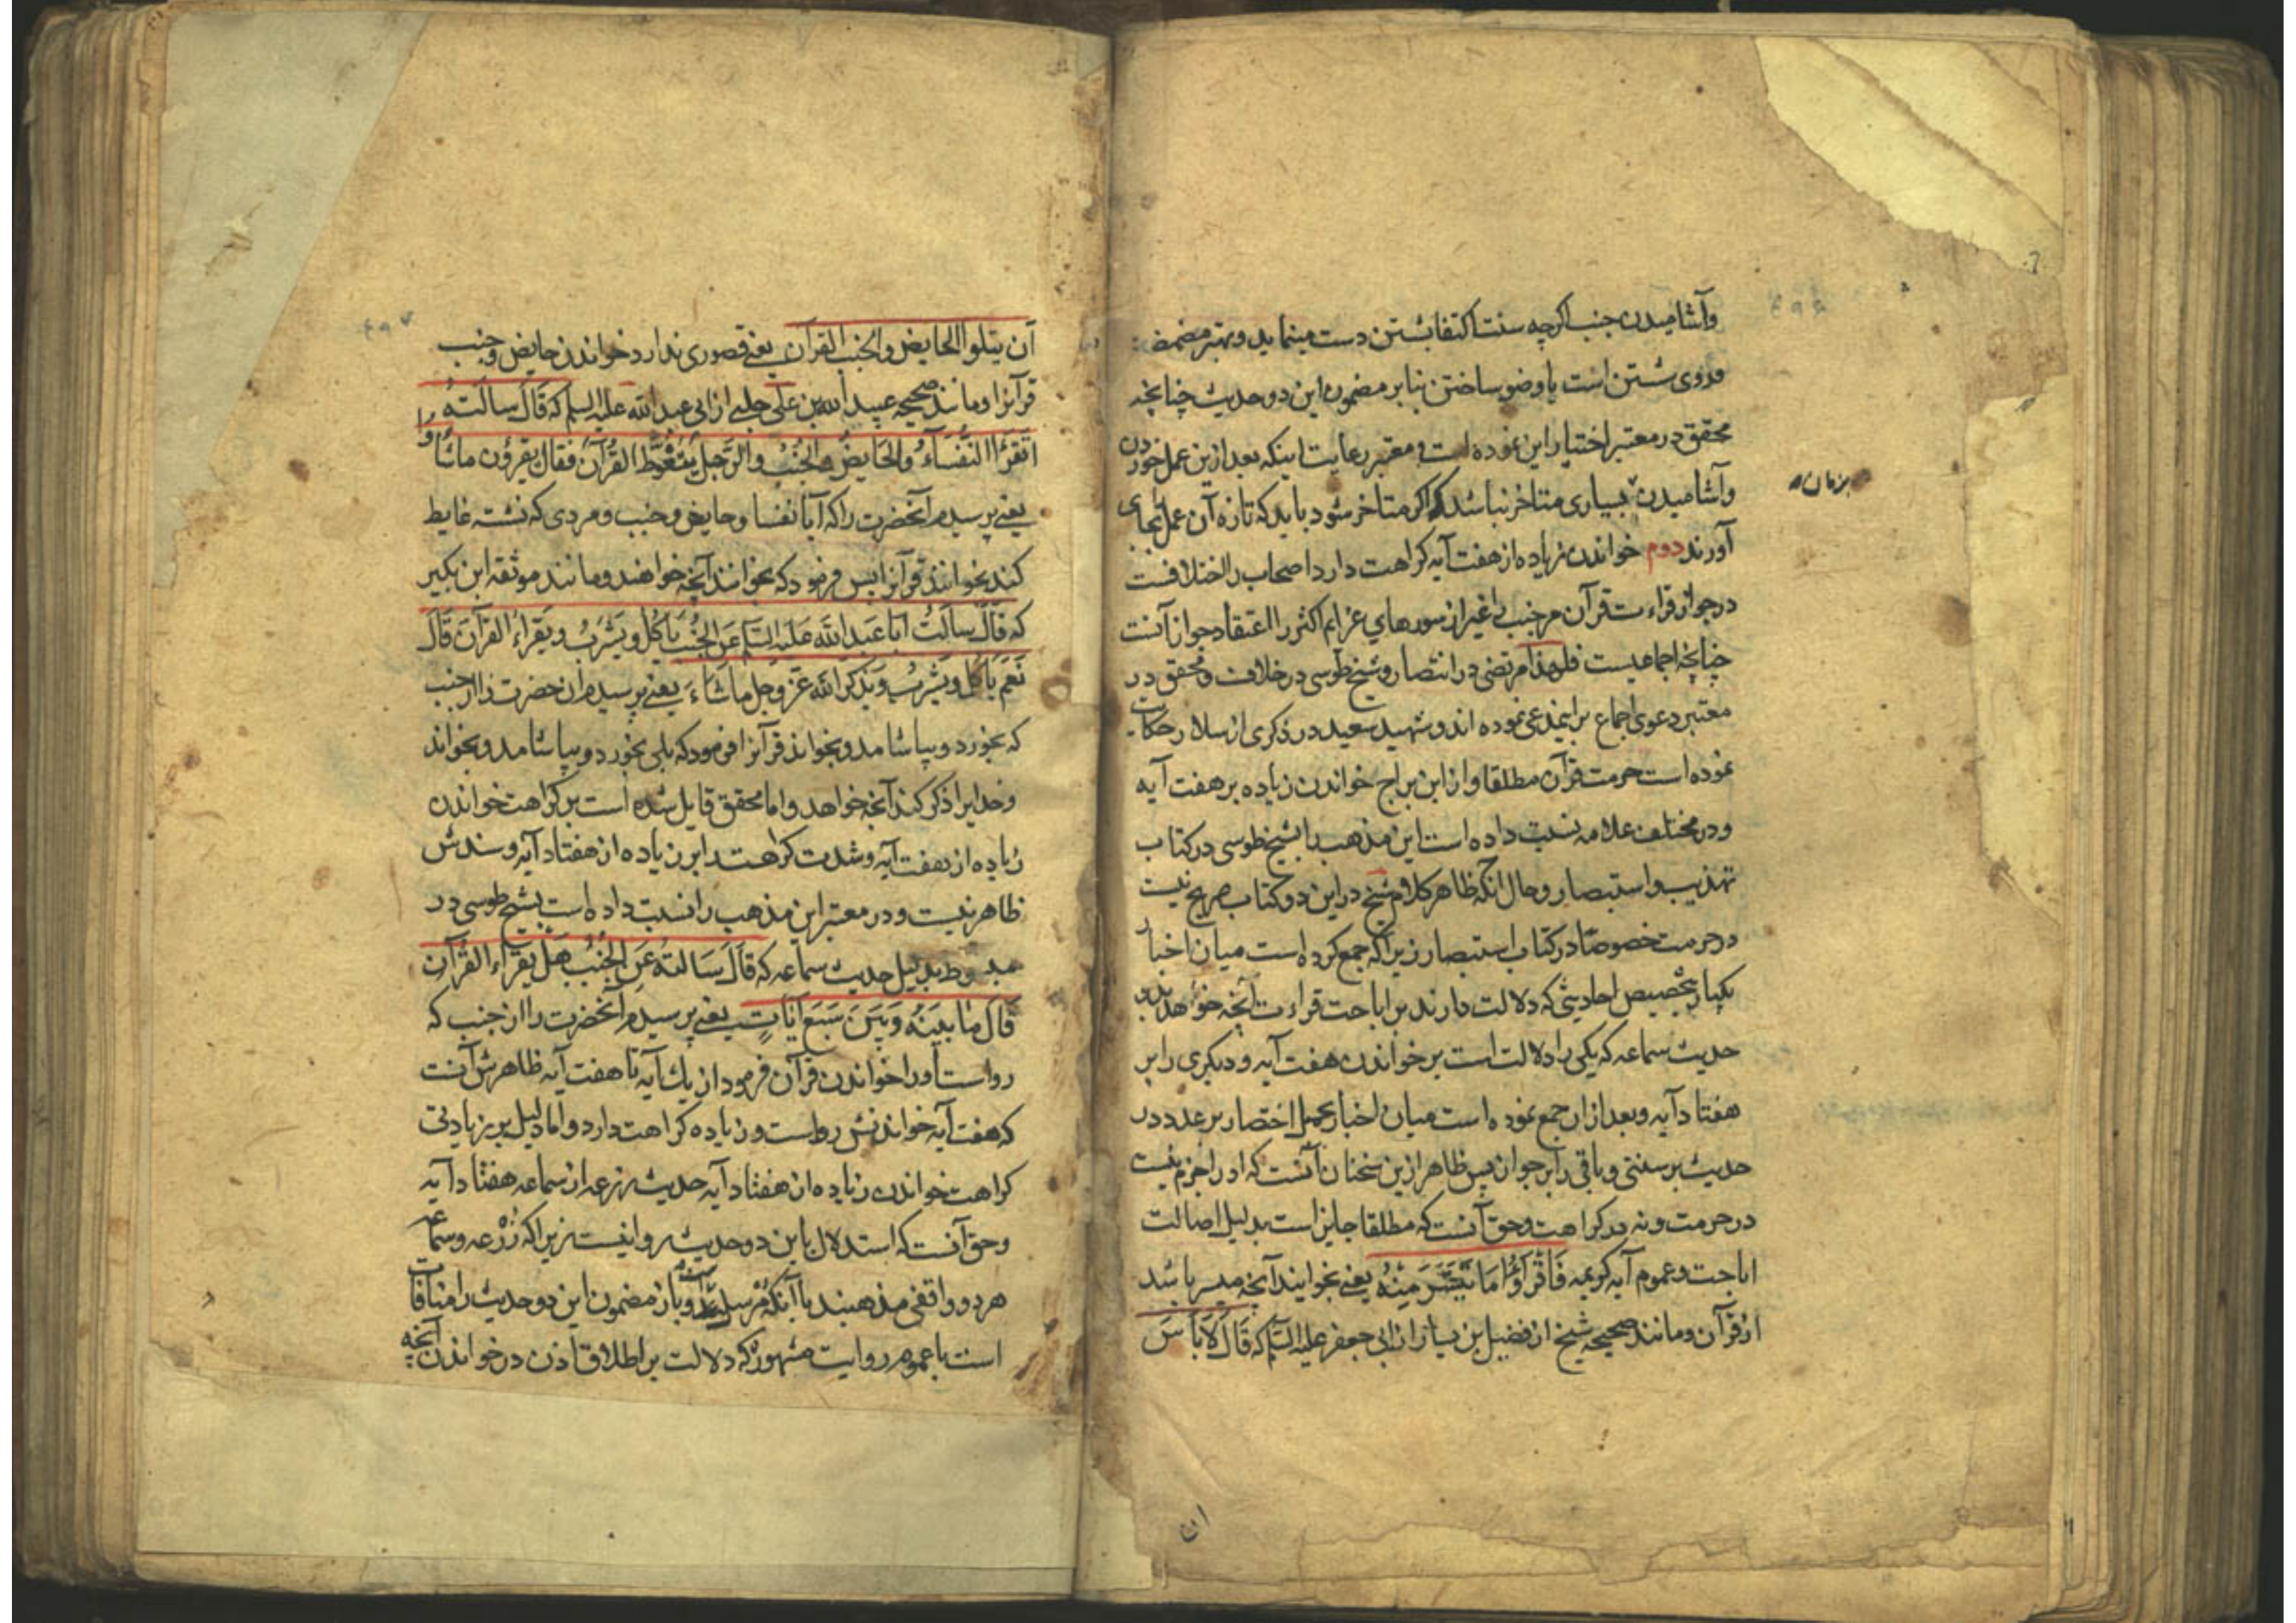 وآشامیدن جنب اکرچه سنت اکتفا بشستن دست مینماید وبهتر مضمضه
وروی شستن است یا وضو ساختن بنابر مضمون این دو حدیث چنانچه
محقق در معتبر اختیار این نموده است ومعتبر رعایت اینکه بعد ازین عمل خوردن
وآشامیدن بسیاری متاخر نباشد که اکر متاخر شود باید که تازه آن عمل بجای
بزمان
آورند دوم خواندن زیاده از هفت آیه کراهت دارد اصحاب را اختلافست
در جواز قراءت قرآن مر جنب را غیر از سورهای عزایم اکثر را اعتقاد جواز آنست
چنانچه اجماعیست فلهذا مرتضی در انتصار وشیخ طوسی در خلاف ومحقق در
معتبر دعوی اجماع براینمدعی نموده اند وشهید سعید در ذکری از سلار حکایت
نموده است حرمت قرآن مطلقا واز ابن براج خواندن زیاده بر هفت آیه
ودر مختلف علامه نسبت داده است این مذهب را بشیخ طوسی در کتاب
تهذیب واستبصار وحال آنکه ظاهر کلام شیخ در این دو کتاب صریح نیست
در حرمت خصوصا در کتاب استبصار زیرا که جمع کرده است میان اخبار
یکبار بتخصیص احادیثی که دلالت دارند بر اباحت قراءت آنچه خواهد بدو
حدیث سماعه که یکی را دلالت است بر خواندن هفت آیه ودیکری را بر
هفتاد آیه وبعد از ان جمع نموده است میان اخبار بحمل اختصار بر عدد در
حدیث بر سنتی وباقی را بر جواز پس ظاهر ازین سخنان آنست که او را جزم نیست
در حرمت ونه در کراهت وحق آنست که مطلقا جایز است بدلیل اصالت
اباحت وعموم آیه کریمه فَاقْرَؤُا مَا تَیَسَّرَ مِنْهُ یعنی بخوانید آنچه میسر باشد
از قرآن ومانند صحیحه شیخ از فضیل بن یسار از ابی جعفر علیه السلام که قَالَ لَابَأسَ
ان
آن یتلوا الحایض والجنب القرآن یعنی قصوری ندارد خواندن حایض وجنب
قرآنرا ومانند صحیحه عبید الله بن علی حلبی از ابی عبد الله علیه السلم که قَالَ سالته
اتقرَاُ النُّفَسَآءُ والحَایِضُ والجُنُبُ والرَّجُلُ یَتَغَوَّطُ القُرآنَ فقال یقرؤن ماشاؤا
یعنی پرسیدم آنحضرت را که آیا نفسا وحایض وجنب ومردی که نشسته غایط
کند بخوانند قرآنرا پس فرمود که بخوانند آنچه خواهند ومانند موثقه ابن بکیر
که قَالَ سَالتُ ابا عَبد الله عَلیه السلم عَن الجُنُبِ یاکُلُ ویَشْرَبُ ویَقرَاءُ القرآنَ قَالَ
نَعَم یَاکُلُ ویَشْرَبُ ویَذکر الله عَزّ وجل ماشاءَ یعنی پرسیدم ان حضرت را از جنب
که بخورد وبیاشامد وبخواند قرآنرا فرمود که بلی بخورد وبیاشامد وبخواند
وخدایرا ذکر کند آنچه خواهد واما محقق قایل شده است بر کراهت خواندن
زیاده از هفت آیه وشدت کراهت در زیاده از هفتاد آیه وسندش
ظاهر نیست ودر معتبر این مذهب را نسبت داده است بشیخ طوسی در
مبسوط بدلیل حدیث سماعه که قَالَ سَالتُهُ عَنِ الجُنُبِ هَل یَقراءُ القُرآنَ
قَالَ مَابَینَهُ وَبَینَ سَبعَ ایَاتٍ یعنی پرسیدم آنحضرت را از جنب که
رواست او را خواندن قرآن فرمود از یک آیه تا هفت آیه ظاهرش آنست
که هفت آیه خواندنش رواست وزیاده کراهت دارد واما دلیل بر زیادتی
کراهت خواندن زیاده از هفتاد آیه حدیث زرعه از سماعه هفتاد آیه
وحق آنست که استدلال باین دو حدیث روا نیست زیرا که زُرعه وسماعه
هردو واقفی مذهبند با آنکه مرسلست وباز مضمون این دو حدیث را منافات
است با عموم روایت مشهوره که دلالت بر اطلاق اذن در خواندن آنچه